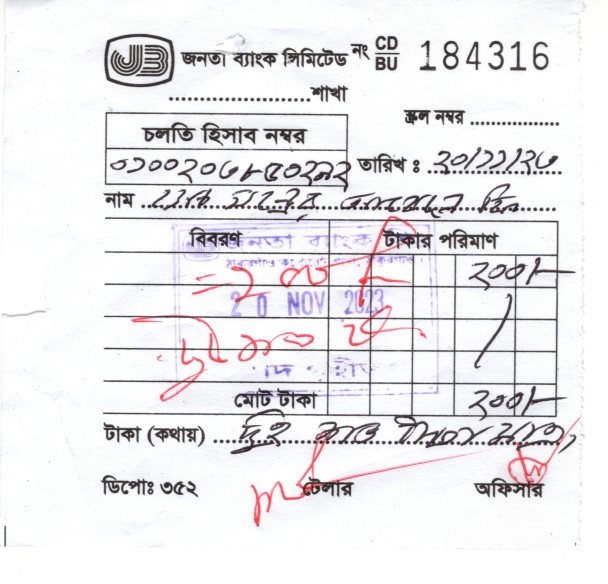 JB জনতা ব্যাংক লিমিটেড নং CD/BU 184316
....................শাখা
স্ক্রল নম্বর ................
চলতি হিসাব নম্বর
তারিখ : ২০/১১/২৩
নাম
বিবরণ টাকার পরিমাণ
জনতা ব্যাংক
= ২০০/- ২০০/-
20 NOV 2023
দুই শত
মোট টাকা ২০০/-
টাকা (কথায়) দুই শত টাকা মাত্র,
ডিপোঃ ৩৫২ টেলার অফিসার